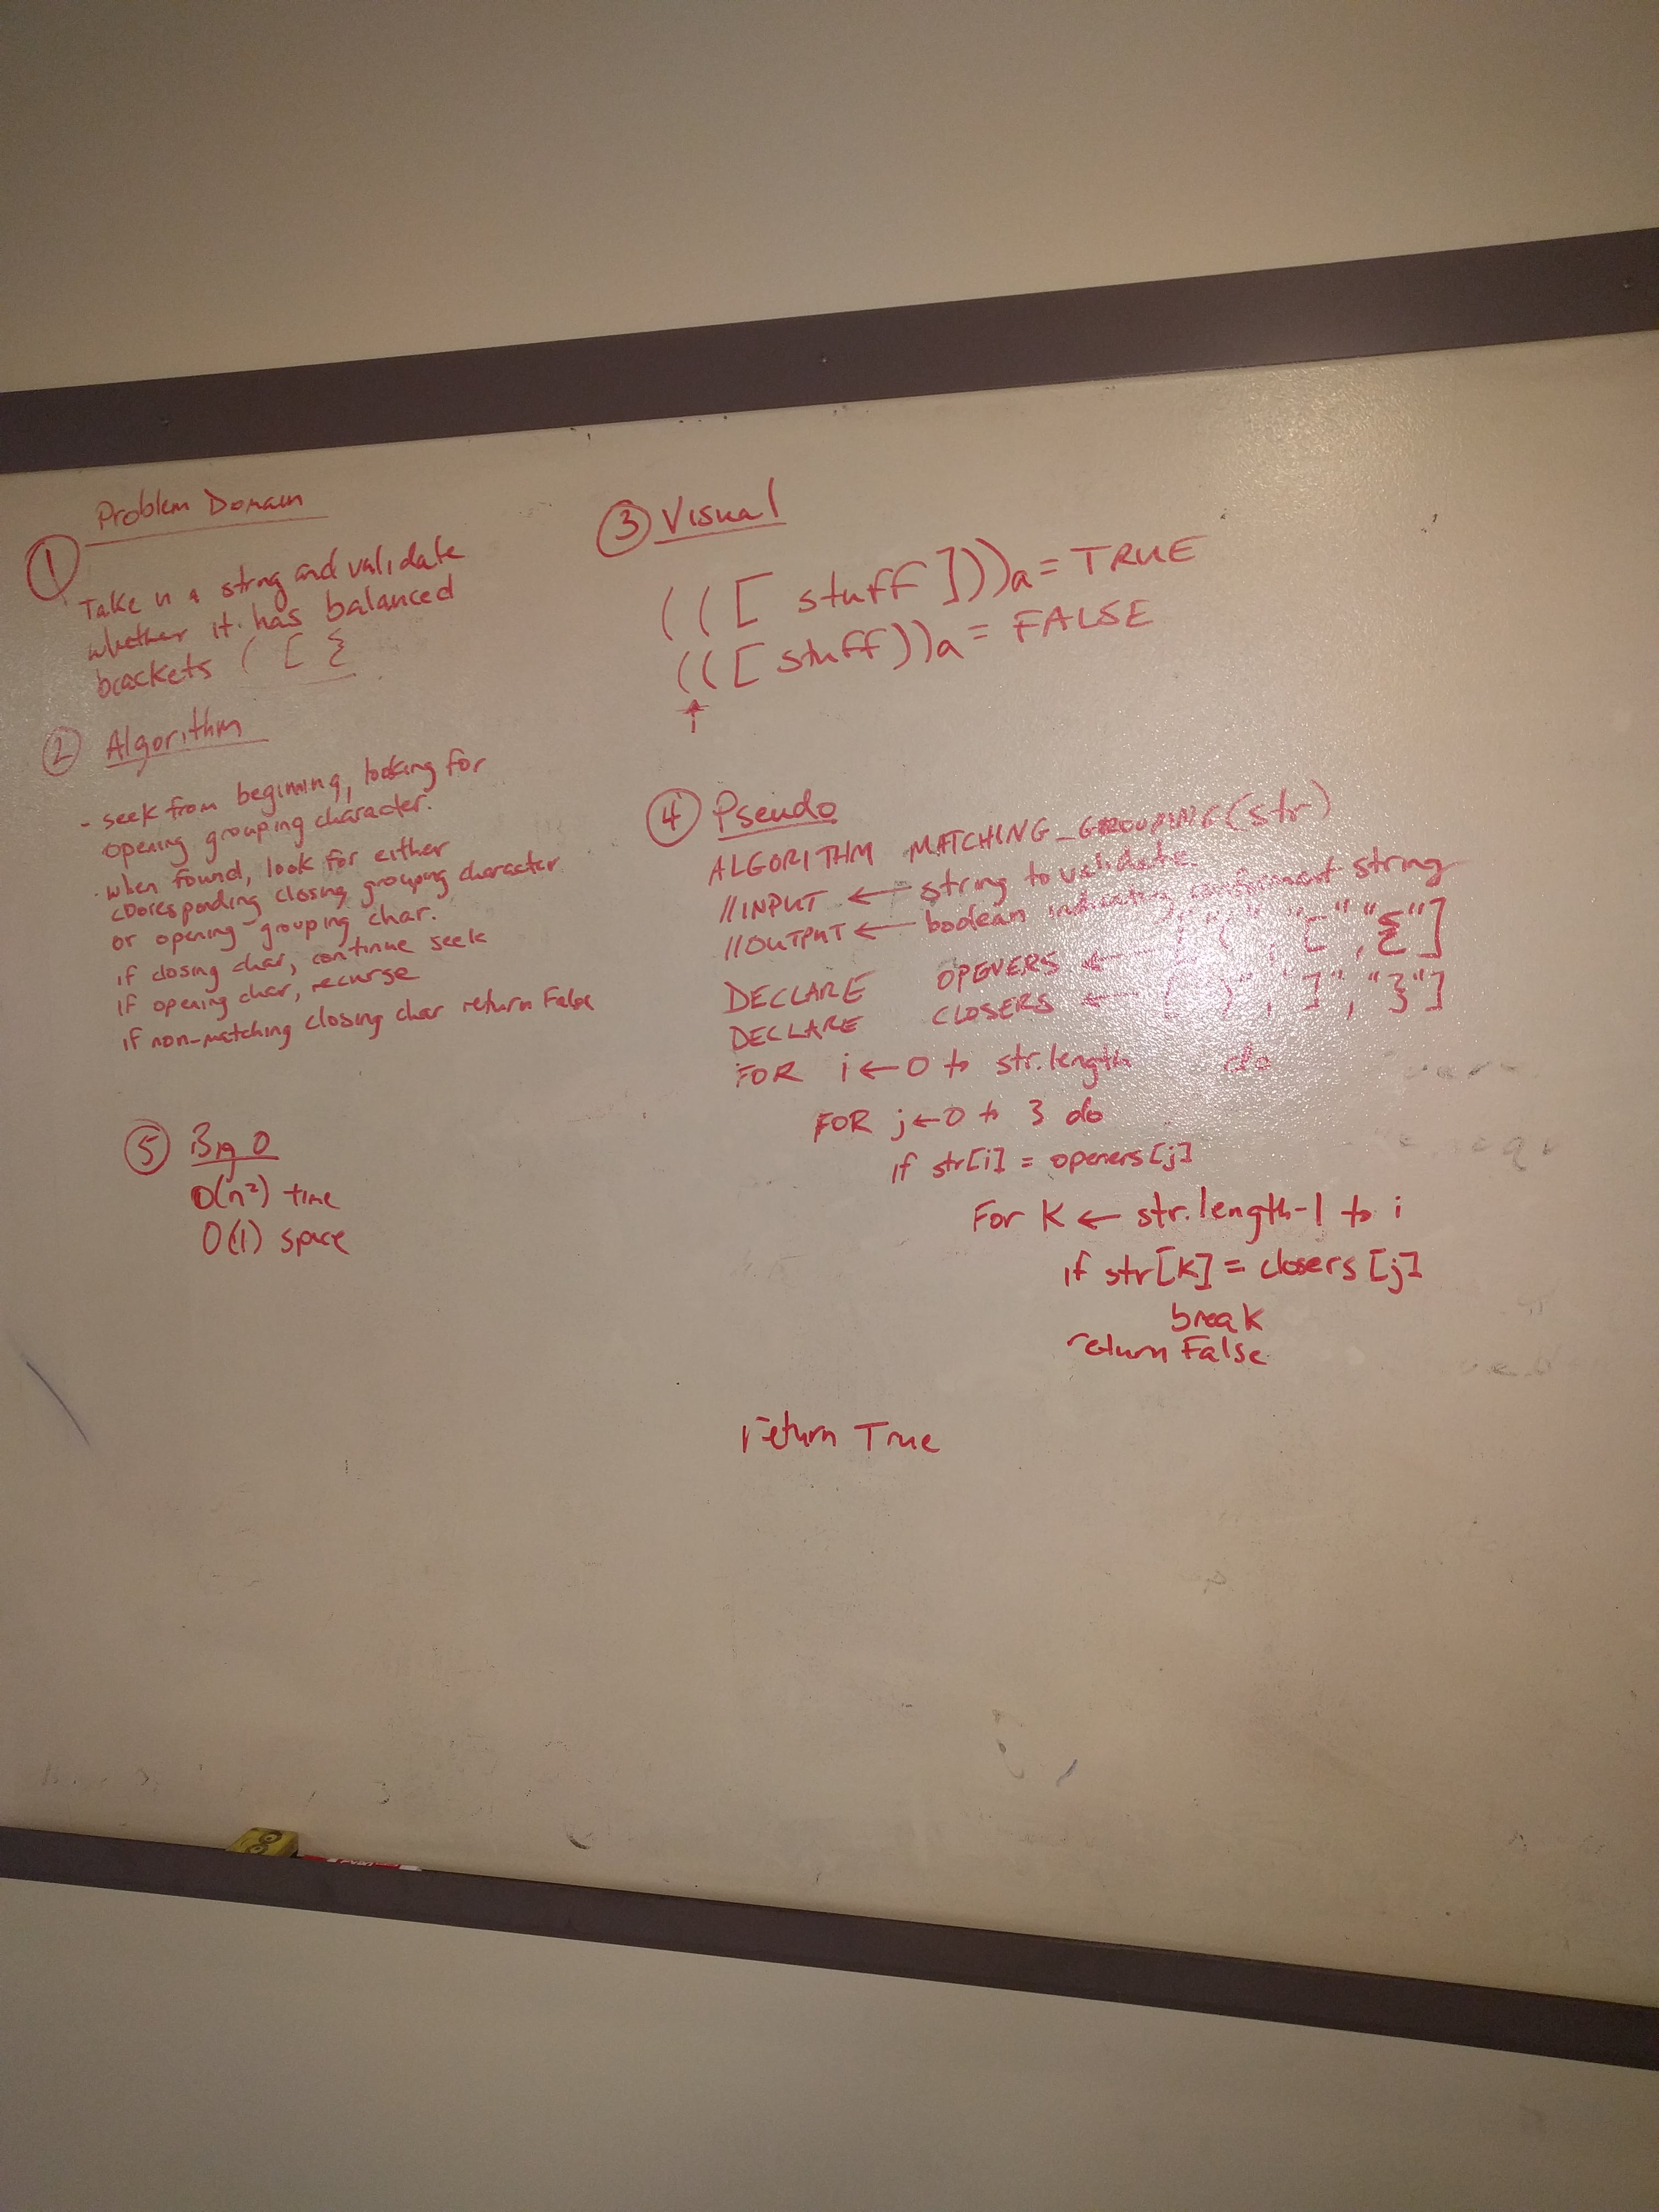 Problem Domain
①
Take in a string and validate
whether it has balanced
brackets ( [ {
② Algorithm
- seek from beginning, looking for
opening grouping character.
- when found, look for either
cooresponding closing grouping character
or opening grouping char.
if closing char, continue seek
if opening char, recurse
if non-matching closing char return False
⑤ Big O
O(n²) time
O(1) space
③ Visual
(([ stuff ]))a = TRUE
(([ stuff))a = FALSE
↑
i
④ Pseudo
ALGORITHM MATCHING_GROUPING(str)
//INPUT ← string to validate.
//OUTPUT ← boolean indicating conformant string
DECLARE OPENERS ← ["(", "[", "{"]
DECLARE CLOSERS ← [")", "]", "}"]
FOR i ← 0 to str.length do
FOR j ← 0 to 3 do
if str[i] = openers[j]
For K ← str.length-1 to i
if str[K] = closers[j]
break
return False
return True